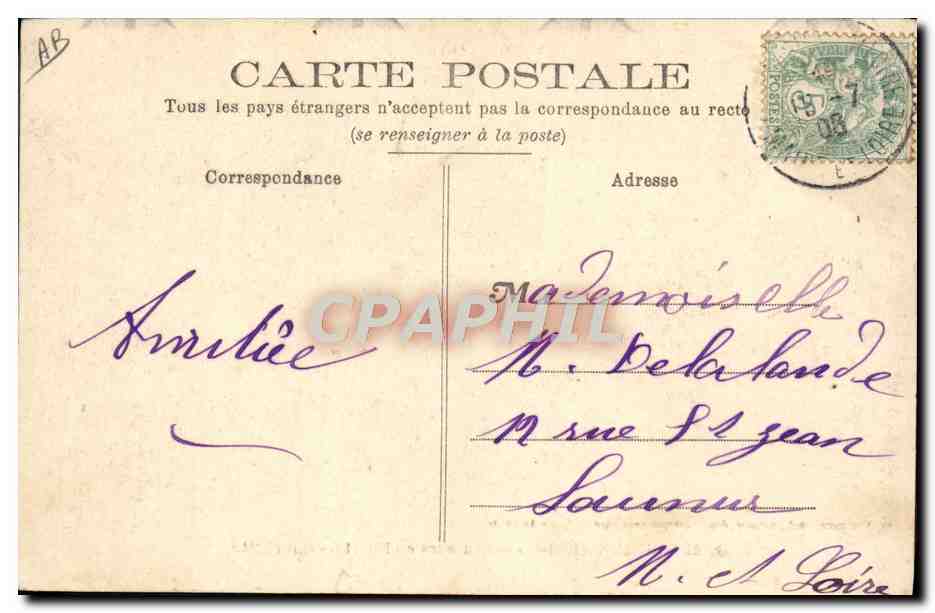 AB
CARTE POSTALE
Tous les pays étrangers n'acceptent pas la correspondance au recto
(se renseigner à la poste)
Correspondance
Adresse
5 -7
05
LOIRE
E
POSTES
Amitiée
Mademoiselle
N. Delalande
12 rue St Jean
Saumur
M. et Loire
CPAPHIL